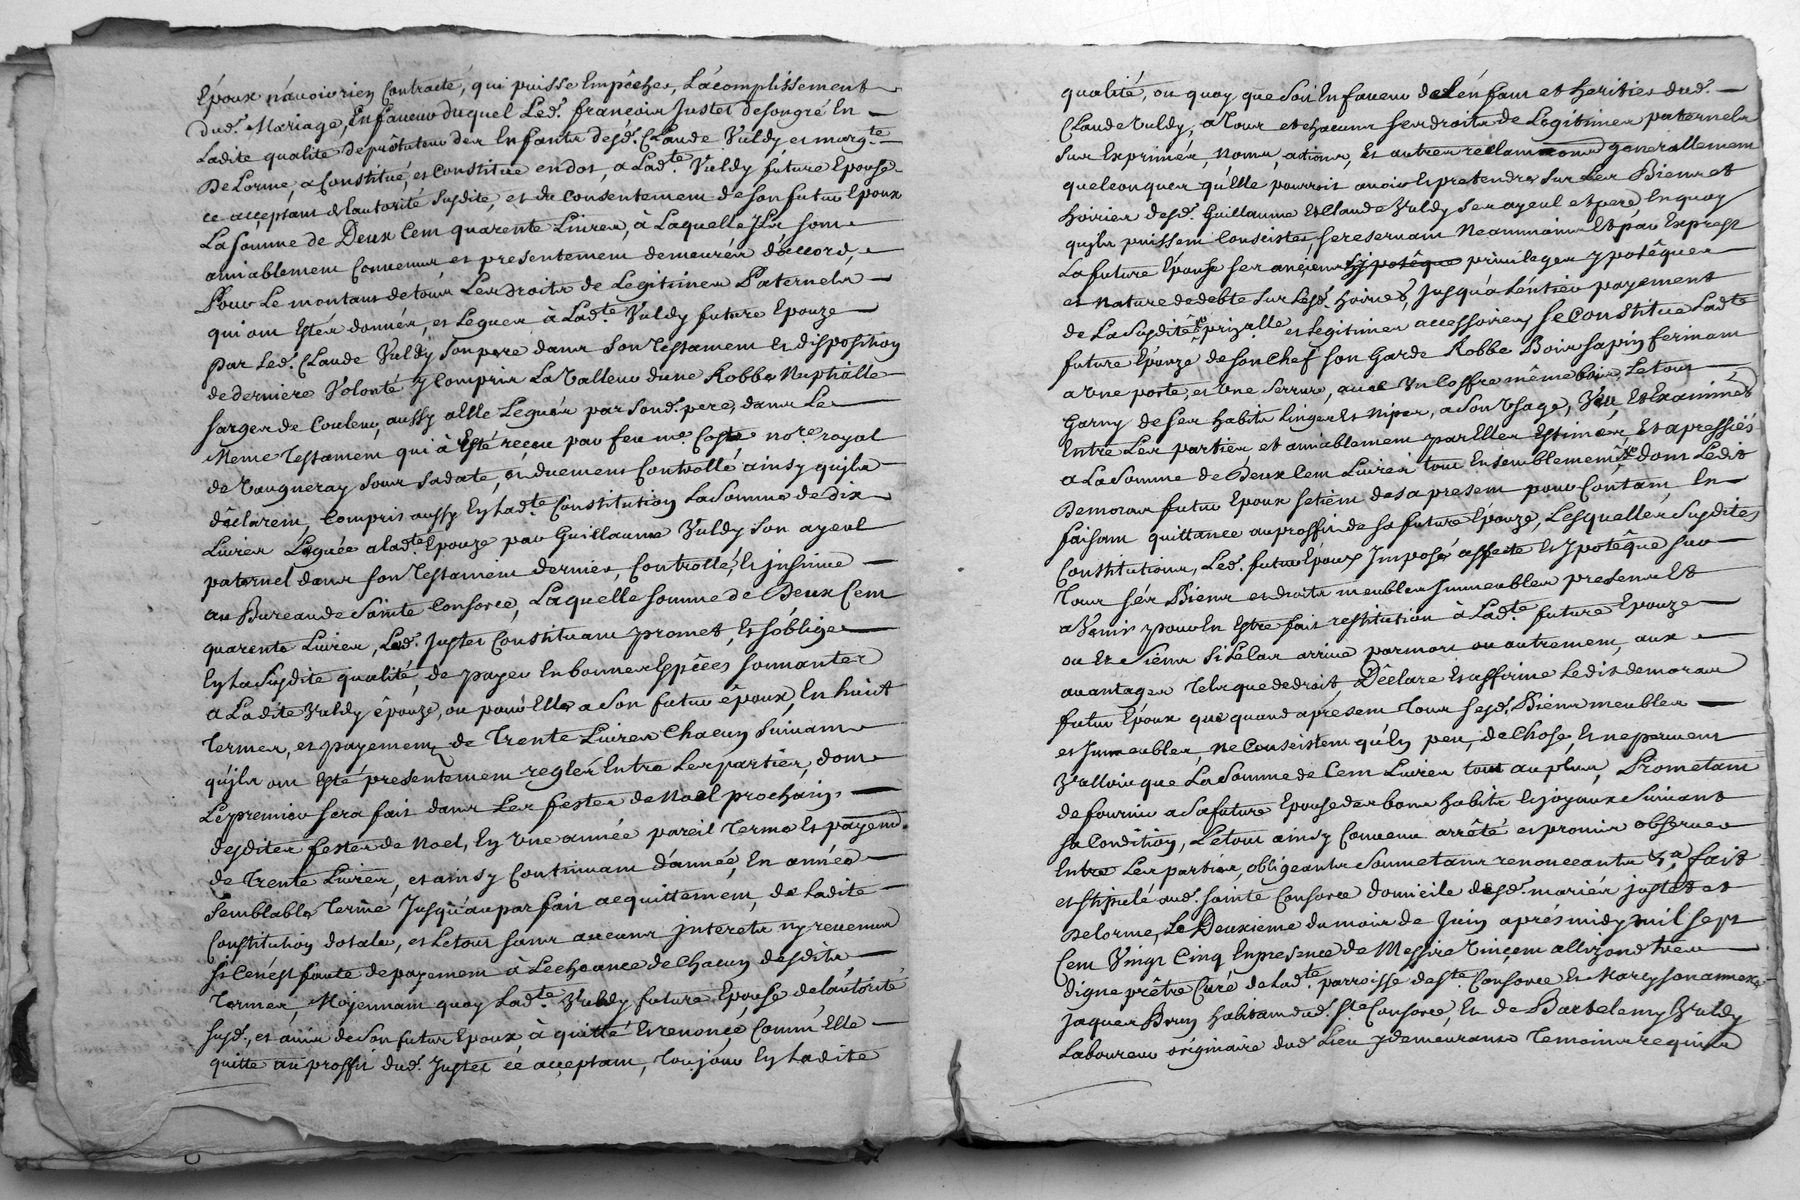 Epoux n'avoir rien Contracté, qui puisse Empêcher, L'acomplissement
dud. Mariage, En faveur duquel Led. françois Justet de son gré En
Ladite qualité de protuteur des Enfants desd. Claude Vuldy et marg.te
De Lorme, a Constitué, et Constitue en dot, a Lad.te Vuldy future Epouse
ce acceptant de Lautorité susdite, et du consentement de son futur Epoux
La somme de Deux Cent quarente Livres, à Laquelle Jls, sont
amiablement Convenus et presentement demeurés d'accord,
Pour Le montant de tous Les droits de Legitimes Paternels
qui ont Estés donnés, et Legués à Lad.te Vuldy future Epouze
par Led. Claude Vuldy son pere dans son Testament et disposition
de derniere Volonté y Compris La Valleur dune Robbe Nuptialle
sarge de Couleur, aussy a Elle Leguée par sond. pere, dans Le
Meme Testament qui à Esté reçeu par feu me Coste no.re royal
de Vaugneray sous sa date, et duement Controllé ainsy qu'jls
déclarent, Compris aussy En Lad.te Constitution La somme de dix
Livres Léguée a lad.te Epouze par Guillaume Vuldy son ayeul
paternel dans son Testament dernier, Controllé, et jnsinué
au Bureau de Sainte Consorce, Laquelle somme de Deux Cent
quarente Livres, Led. Justet Constituant promet, Et s'oblige
En La susdite qualité, de payer En bonnes Espêces sonnantes
a Ladite Vuldy êpouze, ou pour Elle a son futur êpoux, En huict
Termes, et payements de Trente Livres Chacun suivant
qu'jls ont Esté presentement reglés Entre Les parties, dont
Le premier sera fait dans Les festes de Noel prochain,
desdites festes de Noel, En Une année pareil Terme Et payem.t
de Trente Livres, et ainsy Continuant d'année, En année
semblable Terme Jusqu'au parfait acquittement, de Ladite
Constitution dotale, et Le tout sans aucuns jnterets ny revenus
si ce n'est faute de payement à L'echeance de Chacun desdits
Termes, Moyennant quoy Lad.te Vuldy future Epouse de l'autorité
susd., et avis de son futur Epoux à quitté Et renoncé, Comm' Elle
quitte au proffit dud. Justet cé acceptant, Toujour En Ladite
qualité, ou quoy que soit En faveur de L'énfant et héritier dud.
Claude Vuldy, a Tous et chacuns ses droits de Legitimes paternels
sus Exprimés, Noms actions, Et autres reclamations generallement
quelconques qu'Elle pourroit avoir Et pretendre sur Les Biens et
hoiries desd. Guillaume Et Claude Vuldy ses ayeul et pere En quoy
qu'jls puissent Consister, se reservant Neammoins Et par Exprest
La future Epouse ses anciens privileges ypotêques
et Nature de debte sur Lesd. hoiries, Jusqu'a L'éntier payement
de La susdite prizalle et Legitimes accessoires se Constitue Lad.te
future Epouze de son Chef son Garde Robbe Bois sapin fermant
a Une porte, et Une Serrure, avec Un Coffre même bois, Le tout
Garny de ses habits Linges Et Nipes, a son Usage, Vëu, Et Examinés
Entre Les parties et amiablement par Elles Estimés, Et apressiés
a La somme de Deux Cent Livres tout Ensemblement, dont Ledit
Demoras futur Epoux se tient des a present pour Contant, En
faisant quittance au proffit de sa future Epouze, Lesquelles susdites
Constitutions, Led. futur Epoux Jmpose affecte Et Jpotêque sur
Tous sés Biens et droits meubles Jmmeubles presents Et
a Venir pour En Estre fait restitution à Lad.te future Epouze
ou Es siens si Le Cas arrive par mort ou autrement, aux
avantages Tels que de droit, Déclare Et affirme Ledit demoras
futur Epoux que quand apresent Tous sesd. Biens meubles
et Jmmeubles, Ne Consistent qu'En peu, de Chose Et ne peuvent
Valloir que La somme de Cent Livres tout au plus, Prometant
de fournir a sa future Epouse des bons habits Et joyaux suivant
sa Condition, Le tout ainsy Convenu arrêté et promis observer
Entre Les parties, obligeants soumetants renonceants &.a fait
et stipulé aud. sainte Consorce domicile desd. mariés justet et
Delorme, Le Deuxieme du mois de Juin aprés midy mil sept
Cent Vingt Cinq En presence de Messire Vinçent allizond trëu
digne prêtre Curé de lad.te parroisse de S.te Consorce Et Marcy son annexe,
jaques Brun habitant dud. S.te Consorce, Et de Bartelemy Vuldy
Laboureur originaire dud. Lieu y demeurants Temoins requis